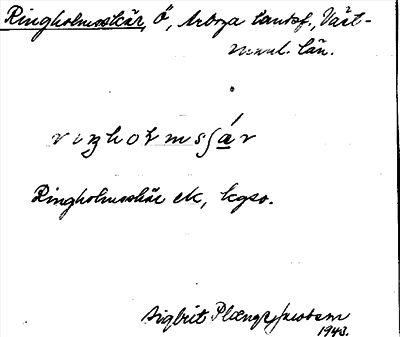 Ringholmsskär, Ö, Arboga landsf., Väst-
manl. län.
rıŋhoɫmsʃá̱r
Ringholmsskär ek, kgso.
Sigbrit Plænge Jacobson
1943.